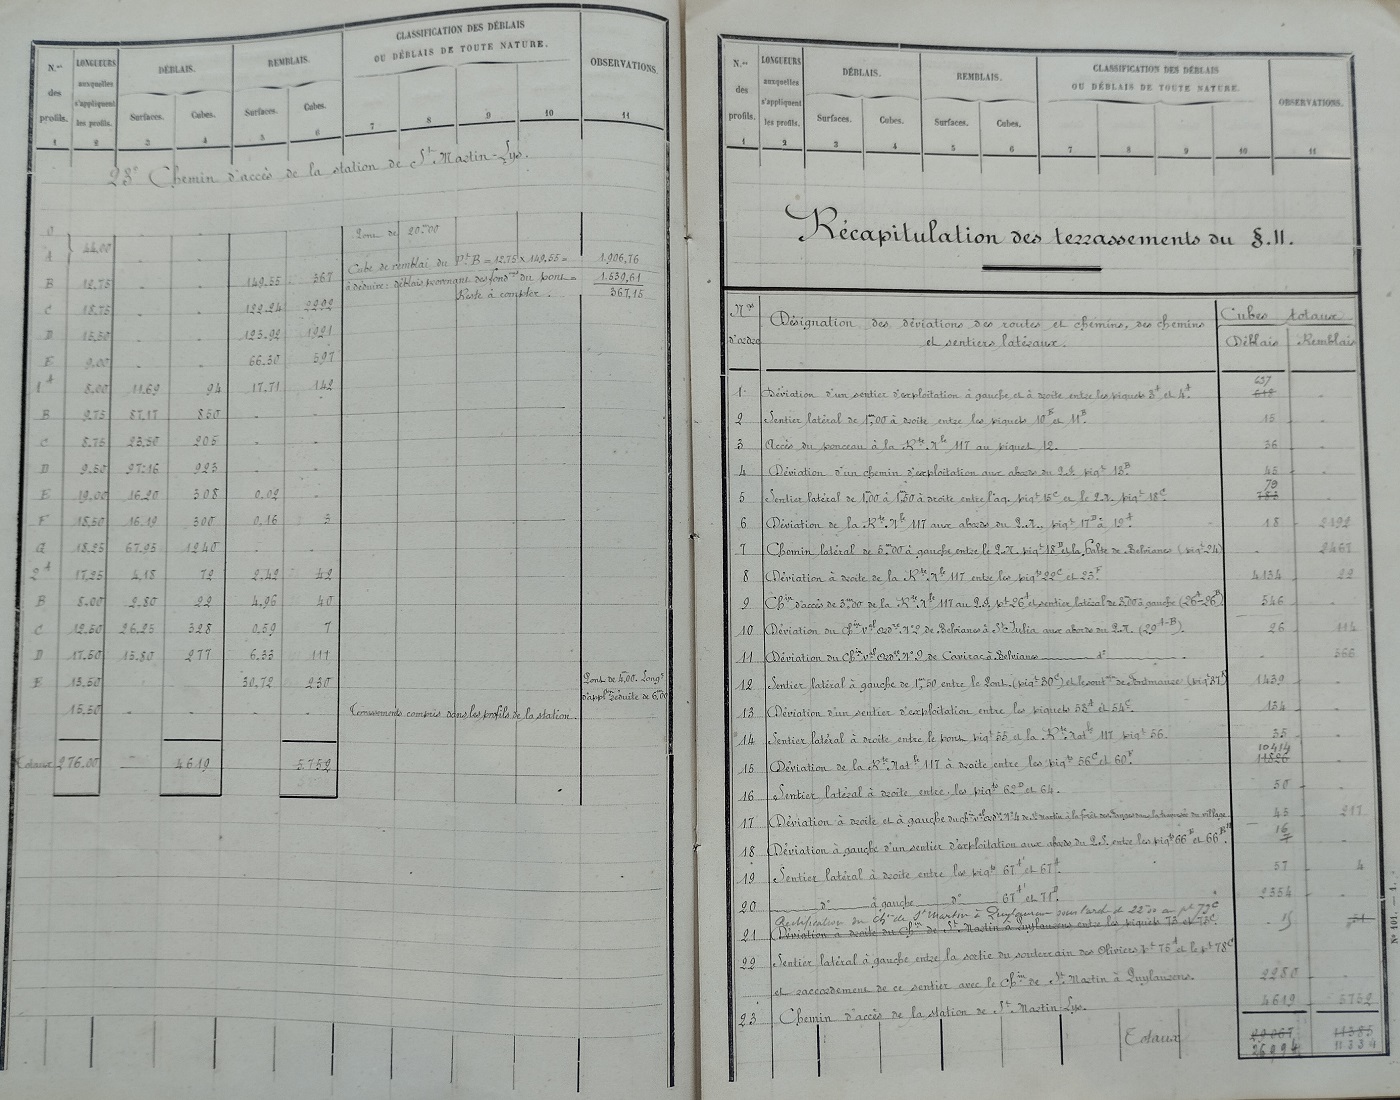 N.os des profils.
LONGUEURS auxquelles s'appliquent les profils.
DÉBLAIS.
REMBLAIS.
CLASSIFICATION DES DÉBLAIS
OU DÉBLAIS DE TOUTE NATURE.
OBSERVATIONS.
Surfaces. Cubes. Surfaces. Cubes.
1 2 3 4 5 6 7 8 9 10 11
23° Chemin d'accès de la station de St. Martin-Lys.
0 " " Pont de 20.m00
A 44.00 " "
Cube de remblai du Pt. B = 12.75 × 149.55 = 1.906,76
B 12.75 " " 149.55 367 à déduire: déblais provenant des fondons du pont = 1.539,61
Reste à compter. 367,15
C 18.75 " " 122.24 2292
D 15.50 " " 123.92 1921
E 9.00 " " 66.30 597
1A 8.00 11.69 94 17.71 142
B 9.75 87.17 850 " "
C 8.75 23.50 205 " "
D 9.50 97.16 923 " "
E 19.00 16.20 308 0.02 "
F 18.50 16.19 300 0.16 3
G 18.25 67.95 1240 " "
2A 17.25 4.18 72 2.42 42
B 8.00 2.80 22 4.96 40
C 12.50 26.25 328 0.59 7
D 17.50 15.80 277 6.33 111
E 13.50 30.72 230 Pont de 4.00. Longr
d'appl. réduite de 6.00
15.50 " " " " Terrassements compris dans les profils de la station.
Totaux 276.00 4619 5752
N.os des profils.
LONGUEURS auxquelles s'appliquent les profils.
DÉBLAIS.
REMBLAIS.
CLASSIFICATION DES DÉBLAIS
OU DÉBLAIS DE TOUTE NATURE.
OBSERVATIONS.
Surfaces. Cubes. Surfaces. Cubes.
1 2 3 4 5 6 7 8 9 10 11
Récapitulation des terrassements du §.II.
Nos d'ordre
Désignation des déviations des routes et chemins, des chemins
et sentiers latéraux.
Cubes totaux
Déblais Remblais
637
1 Déviation d'un sentier d'exploitation à gauche et à droite entre les piquets 3A et 4A. "
2 Sentier latéral de 1.m00 à droite entre les piquets 10B et 11B. 15 "
3 Accès du ponceau à la Rte. Nle 117 au piquet 12. 36 "
4 Déviation d'un chemin d'exploitation aux abords du P.I. piqt 13B. 45 "
79
5 Sentier latéral de 1.00 à 1.50 à droite entre l'aq. piqt 15C et le P.I. piqt 18C. 783 "
6 Déviation de la Rte. Nle 117 aux abords du P.I., piqts 17D à 19A 18 2192
7 Chemin latéral de 3.m00 à gauche entre le P.I. piqt 18D et la halte de Belvianes (piqt 24) " 2467
8 Déviation à droite de la Rte. Nle 117 entre les piqts 22C et 23F. 4134 22
9 Chin d'accès de 3.m00 de la Rte. Nle 117 au P.I. pt 26A et sentier latéral de 3.00 à gauche (26A-26B). 546 "
10 Déviation du Chin val ordre N°2 de Belvianes à St. Julia aux abords du P.I. (29A-B). 26 114
11 Déviation du Chin val ordre N°9 de Cavirac à Belvianes d° " 566
12 Sentier latéral à gauche de 1.m50 entre le Pont (piqt 30C) et le sout. de (piqt 37) 1439 "
13 Déviation d'un sentier d'exploitation entre les piquets 53A et 54C. 134 "
14 Sentier latéral à droite entre le pont piqt 55 et la Rte. Natle 117 piqt 56. 35 "
10414
15 Déviation de la Rte. Natle 117 à droite entre les piqts 56C et 60F. 11826 "
16 Sentier latéral à droite entre les piqts 62D et 64. 30 "
17 Déviation à droite et à gauche du N°4 de St Martin à la forêt des Fanges dans la traversée du village 43 217
16
18 Déviation à gauche d'un sentier d'exploitation aux abords du P.S. entre les piqts 66B et 66B. 7 "
19 Sentier latéral à droite entre les piqts 67A' et 67A. 57 4
20 d° à gauche d° 67A' et 71D. 2354 "
Rectification du Chin de St Martin à Quylaurens sous l'arche de 22m00 au pt 73C
21 Déviation à droite du Chin de St. Martin à Quylaurens entre les piquets 73 et 73C. 15 51
22 Sentier latéral à gauche entre la sortie du souterrain des Oliviers pt 75A et le pt 78C
et raccordement de ce sentier avec le Chin de St. Martin à Quylaurens. 2280 "
23 Chemin d'accès de la station de St. Martin-Lys. 4619 5752
Totaux 29067 11385
26994 11334
N° 101. — 1.